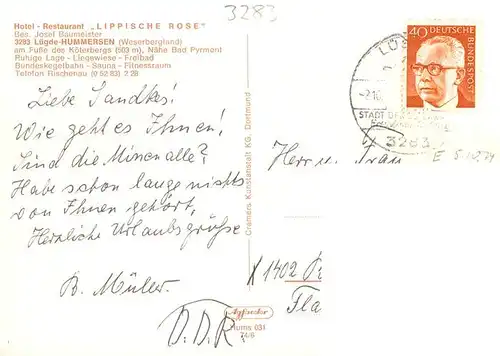 3283
Hotel - Restaurant „LIPPISCHE ROSE"
Bes. Josef Baumeister
3283 Lügde-HUMMERSEN (Weserbergland)
am Fuße des Köterbergs (503 m), Nähe Bad Pyrmont
Ruhige Lage - Liegewiese - Freibad
Bundeskegelbahn - Sauna - Fitnessraum
Telefon Rischenau (0 52 83) 2 28
40 DEUTSCHE BUNDESPOST
STADT DER
3283
E 5.10.74
Liebe Sandkes!
Wie geht es Ihnen!
Sind die Minen alle?
Habe schon lange nichts
von Ihnen gehört,
Herzliche Urlaubsgrüße
B. Müller
D.D.R
Cramers Kunstanstalt KG, Dortmund
Herr u. Frau
X 1402
Fla
Hums 031
74/6